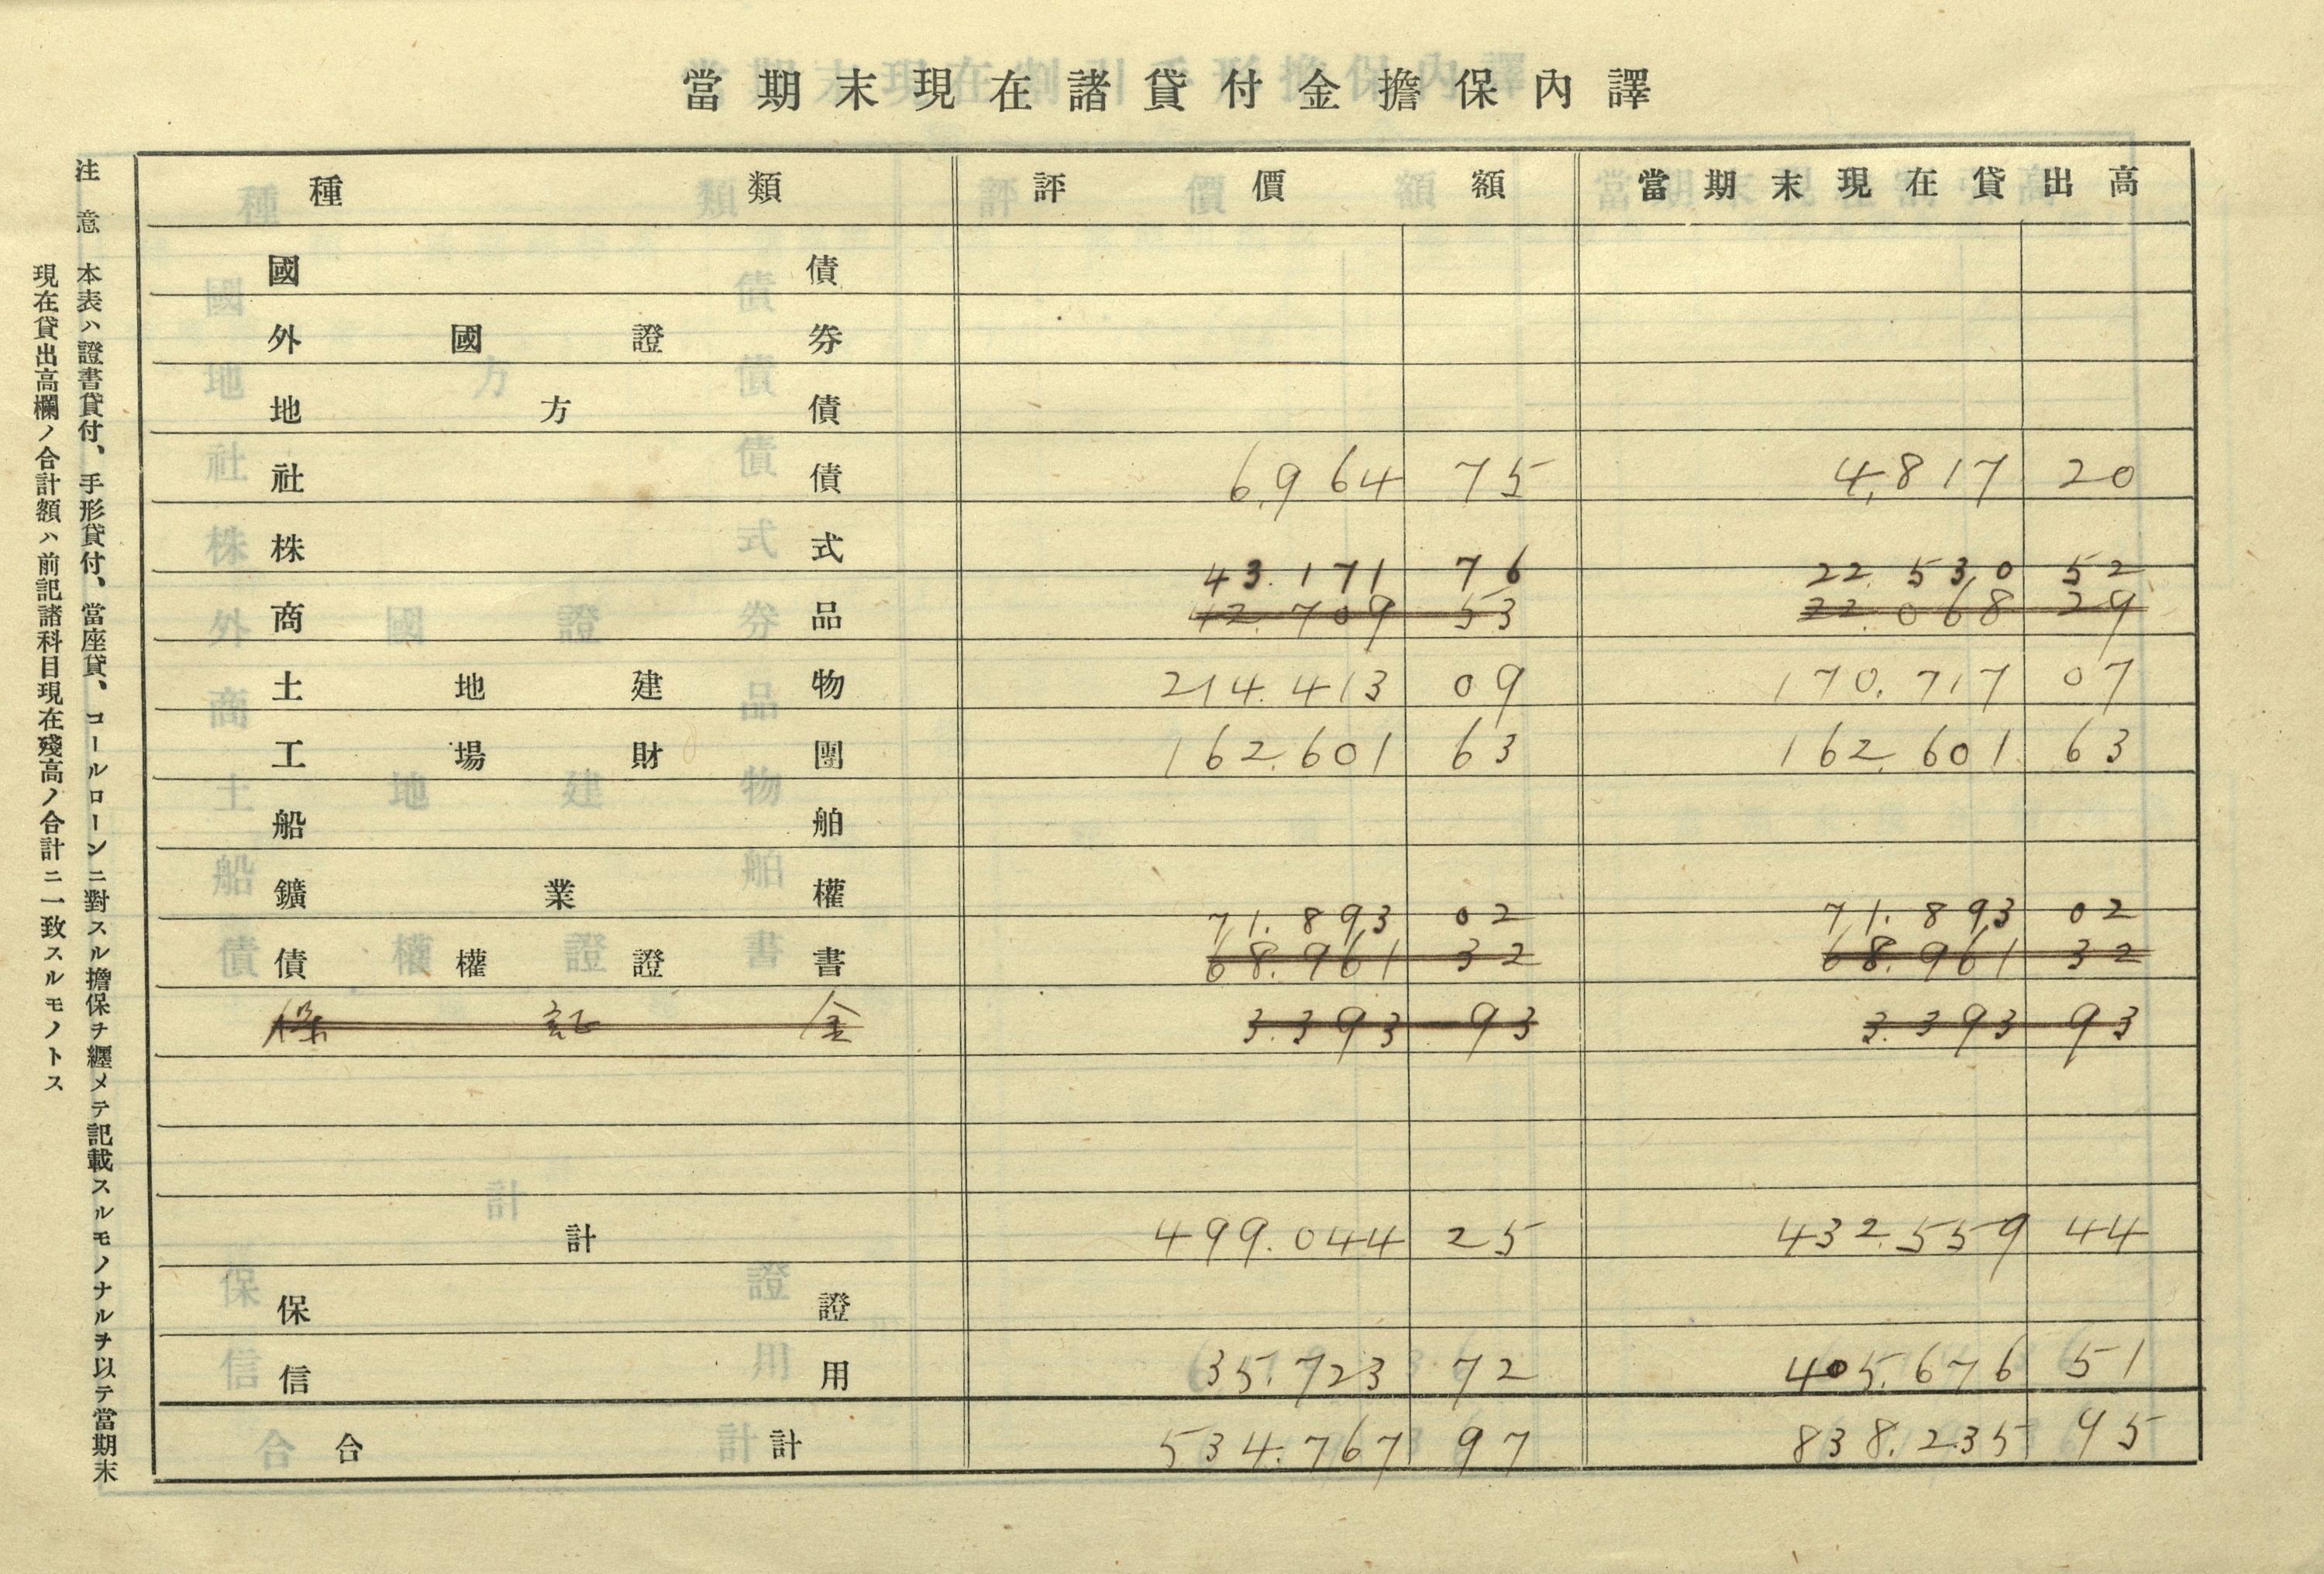 當期末現在諸貸付金擔保內譯
種類 評價額 當期末現在貸出高
國債
外國證券
地方債
社債 6,964 75 4,817 20
株式
43.171 76 22.530 52
商品 42.709 53 22.068 29
土地建物 214.413 09 170.717 07
工場財團 162.601 63 162.601 63
船舶
鑛業權
71.893 02 71.893 02
債權證書 68.961 32 68.961 32
保証金 3.393 93 3.393 93
計 499.044 25 432.559 44
保證
信用 35.723 72 405.676 51
合計 534.767 97 838.235 95
注意 本表ハ證書貸付、手形貸付、當座貸、コールローンニ對スル擔保ヲ纒メテ記載スルモノナルヲ以テ當期末
現在貸出高欄ノ合計額ハ前記諸科目現在殘高ノ合計ニ一致スルモノトス